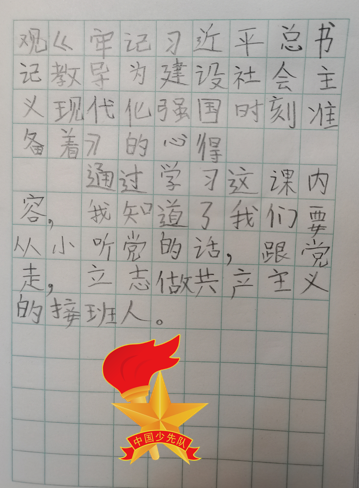 观《牢记习近平总书
记教导为建设社会主
义现代化强国时刻准
备着》的心得
通过学习这课内
容，我知道了我们要
从小听党的话，跟党
走，立志做共产主义
的接班人。
中国少先队